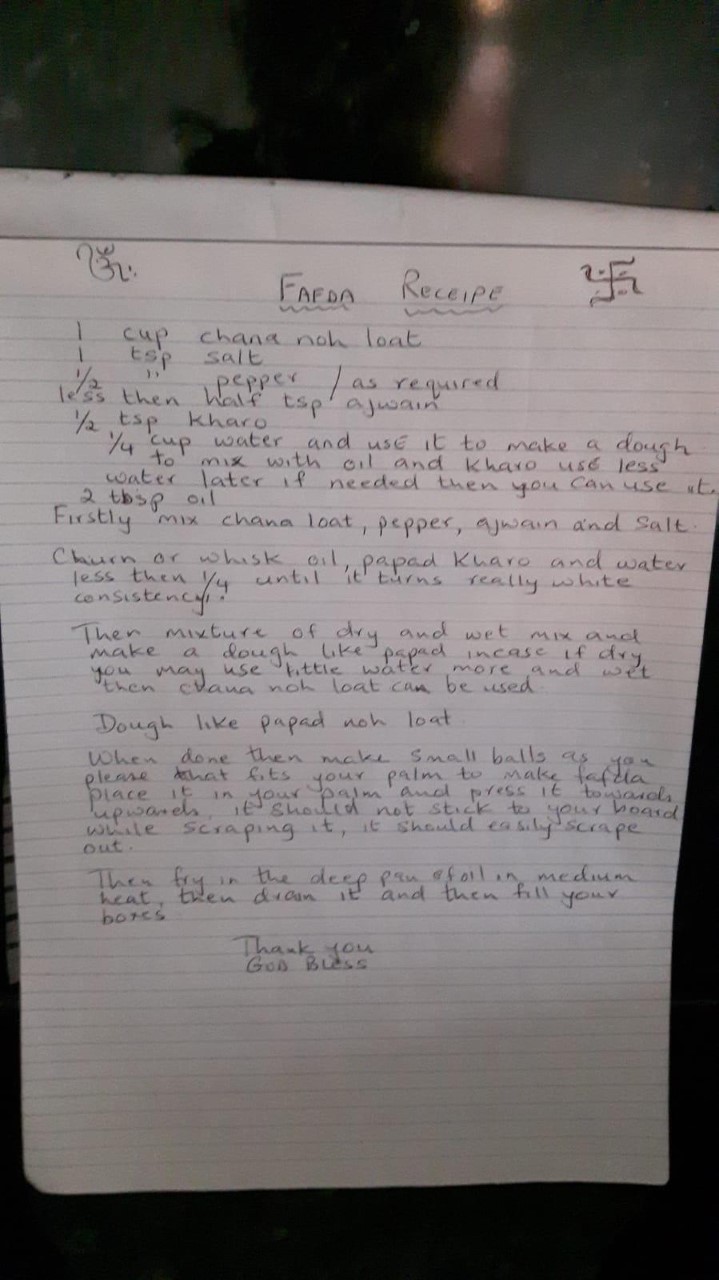 ૐ 卐
FAFDA RECEIPE
1 cup chana noh loat
1 tsp salt
1/2 " pepper / as required
less then half tsp ajwain
1/2 tsp kharo
1/4 cup water and use it to make a dough
to mix with oil and kharo use less
water later if needed then you can use it.
2 tbsp oil
Firstly mix chana loat, pepper, ajwain and salt.
Churn or whisk oil, papad kharo and water
less then 1/4 until it turns really white
consistency.
Then mixture of dry and wet mix and
make a dough like papad incase if dry
you may use little water more and wet
then chana noh loat can be used.
Dough like papad noh loat.
When done then make small balls as you
please that fits your palm to make fafda
place it in your palm and press it towards
upwards, it should not stick to your board
while scraping it, it should easily scrape
out.
Then fry in the deep pan of oil in medium
heat, then drain it and then fill your
boxes
Thank you
GOD BLESS